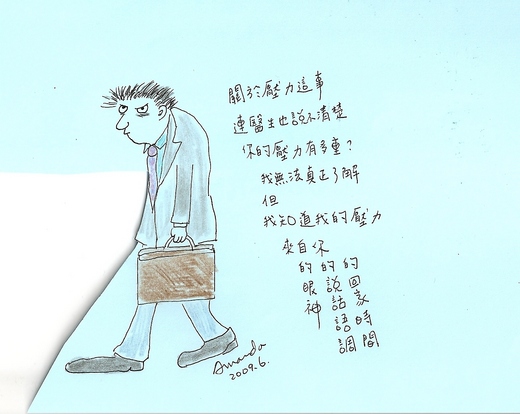 關於壓力這事
連醫生也說不清楚
你的壓力有多重?
我無法真正了解
但
我知道我的壓力
來自你
的眼神
的說話語調
的回家時間
Amanda
2009.6.